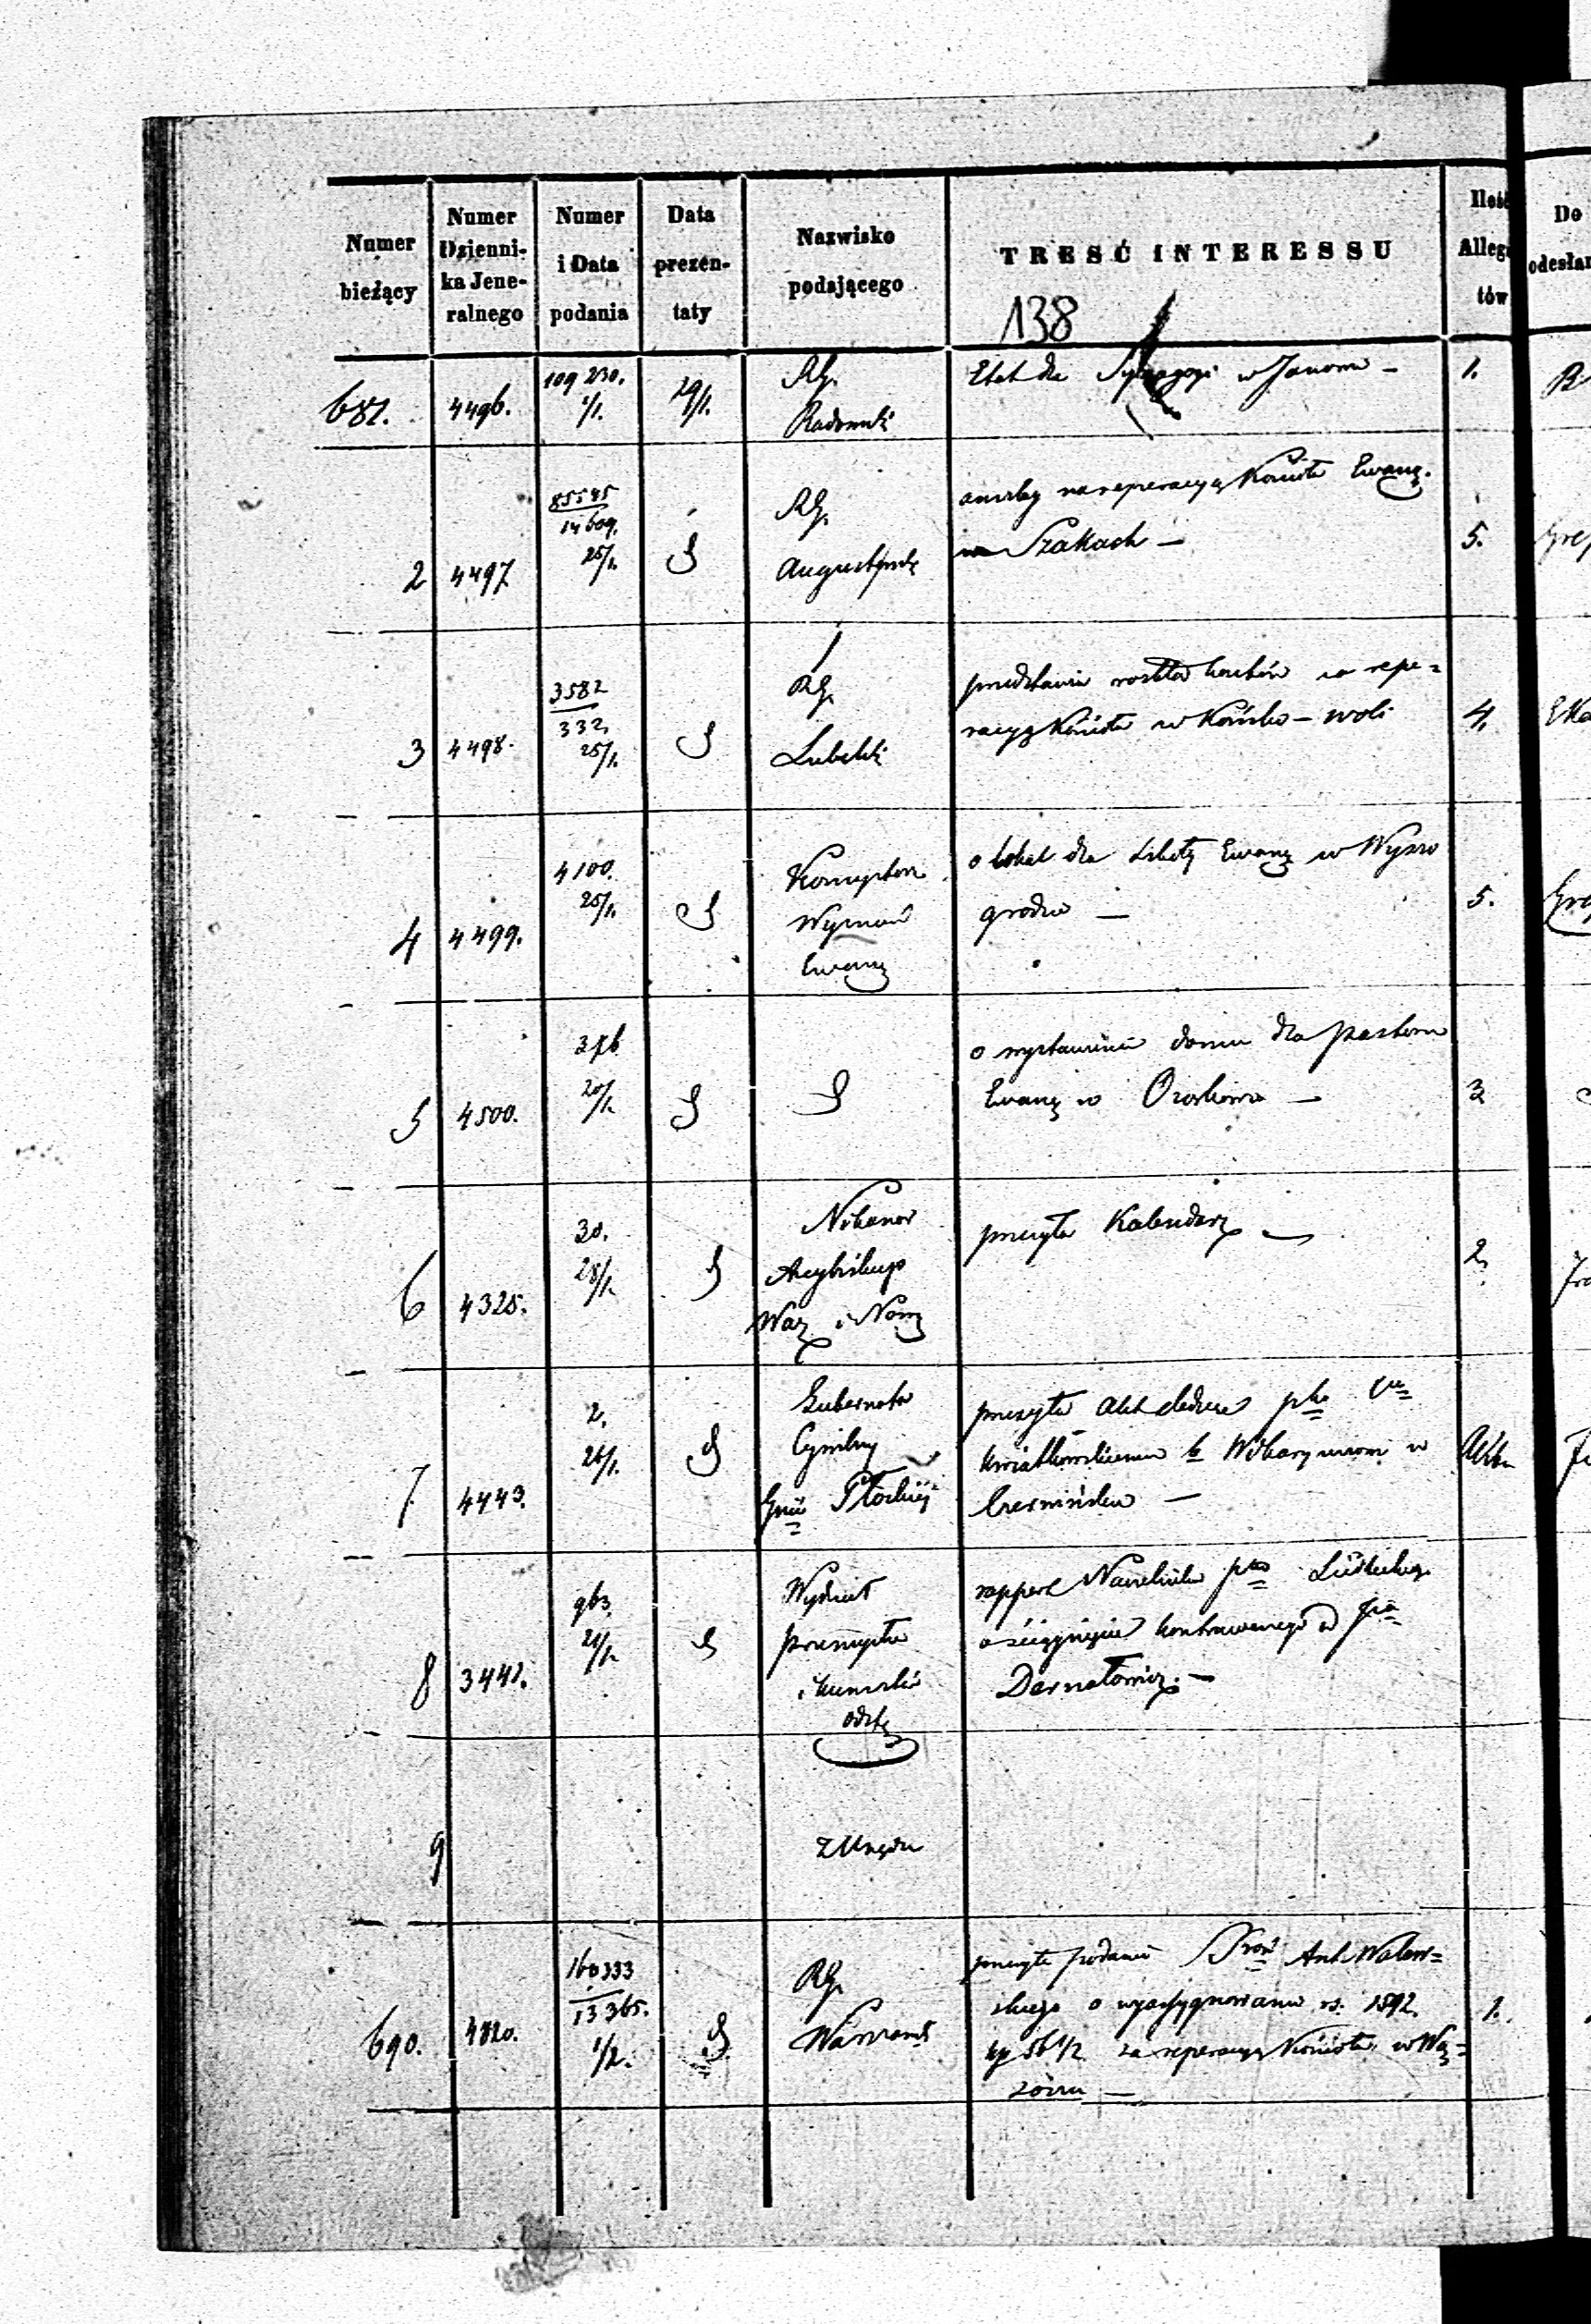 Numer bieżący
Numer Dzienni- ka Jene- ralnego
Numer i Data podania
Data prezen- taty
Nazwisko podającego
TRESĆ INTERESSU
Ilość Allega tów
Do odesłan
138
681. 4496. 109 230. 1/1. 29/1. RG. Radomski Etat dla Synagogi w Janowie – 1.
2 4497 85545 14609. 25/1. RG. Augustowski
na reperacyą Kościoła Ewang.
w Szakach – 5.
3 4498. 3582 332, 25/1. RG. Lubelski
przedstawia rozkład kosztów na repe=
racyą Kościoła w Końsko-woli 4.
4 4499. 4100. 25/1. Konsystorz Wyznań Ewang
o lokal dla Szkoły Ewang w Wyszo
grodzie – 5.
5 4500. 376 20/1.
o wystawienie domu dla pastora
Ewang w Ozorkowie – 3
6 4325. 30. 28/1. Nikanor Arcybiskup Warz i Nowg
przesyła Kalendarz – 2
7 4443. 2. 26/1. Gubernator Cywilny Gnii Płockiej
przesyła Akt
Kwiatkowskiemu Wikaryuszowi w
Czerwińsku –
8 3441. 963. 21/1. Wydział przemysłu i kunsztów
rapport Naczelnika ptu
o ściągnięcie
Dernałowicz. –
9 z Urzędu
690. 4820. 160333 13365. 1/2. RG. Warszaws
przesyła podanie Ant Walew=
skiego o wyasygnowanie rs. 1592.
kp 56 1/2 za reperacyą Kościoła w Wą=
– 1.